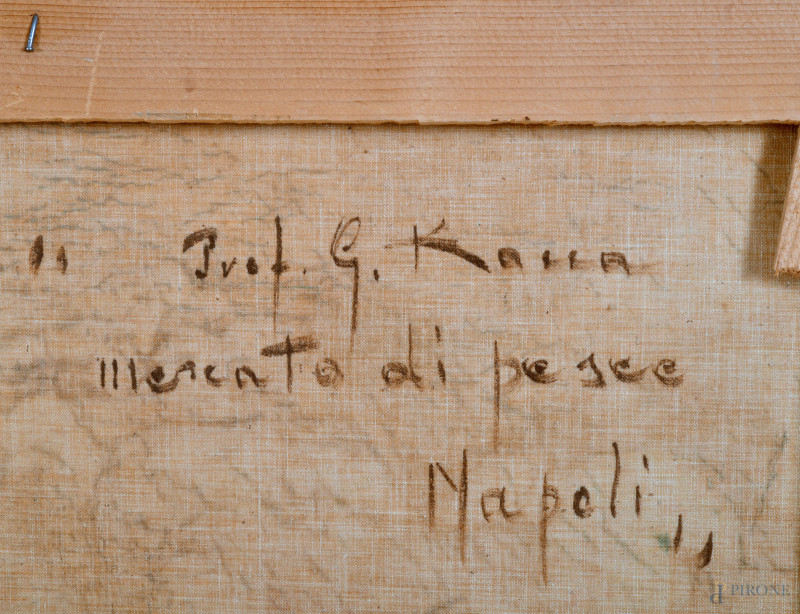 " Prof. G. Kassa
mercato di pesce
Napoli "
PIRONE